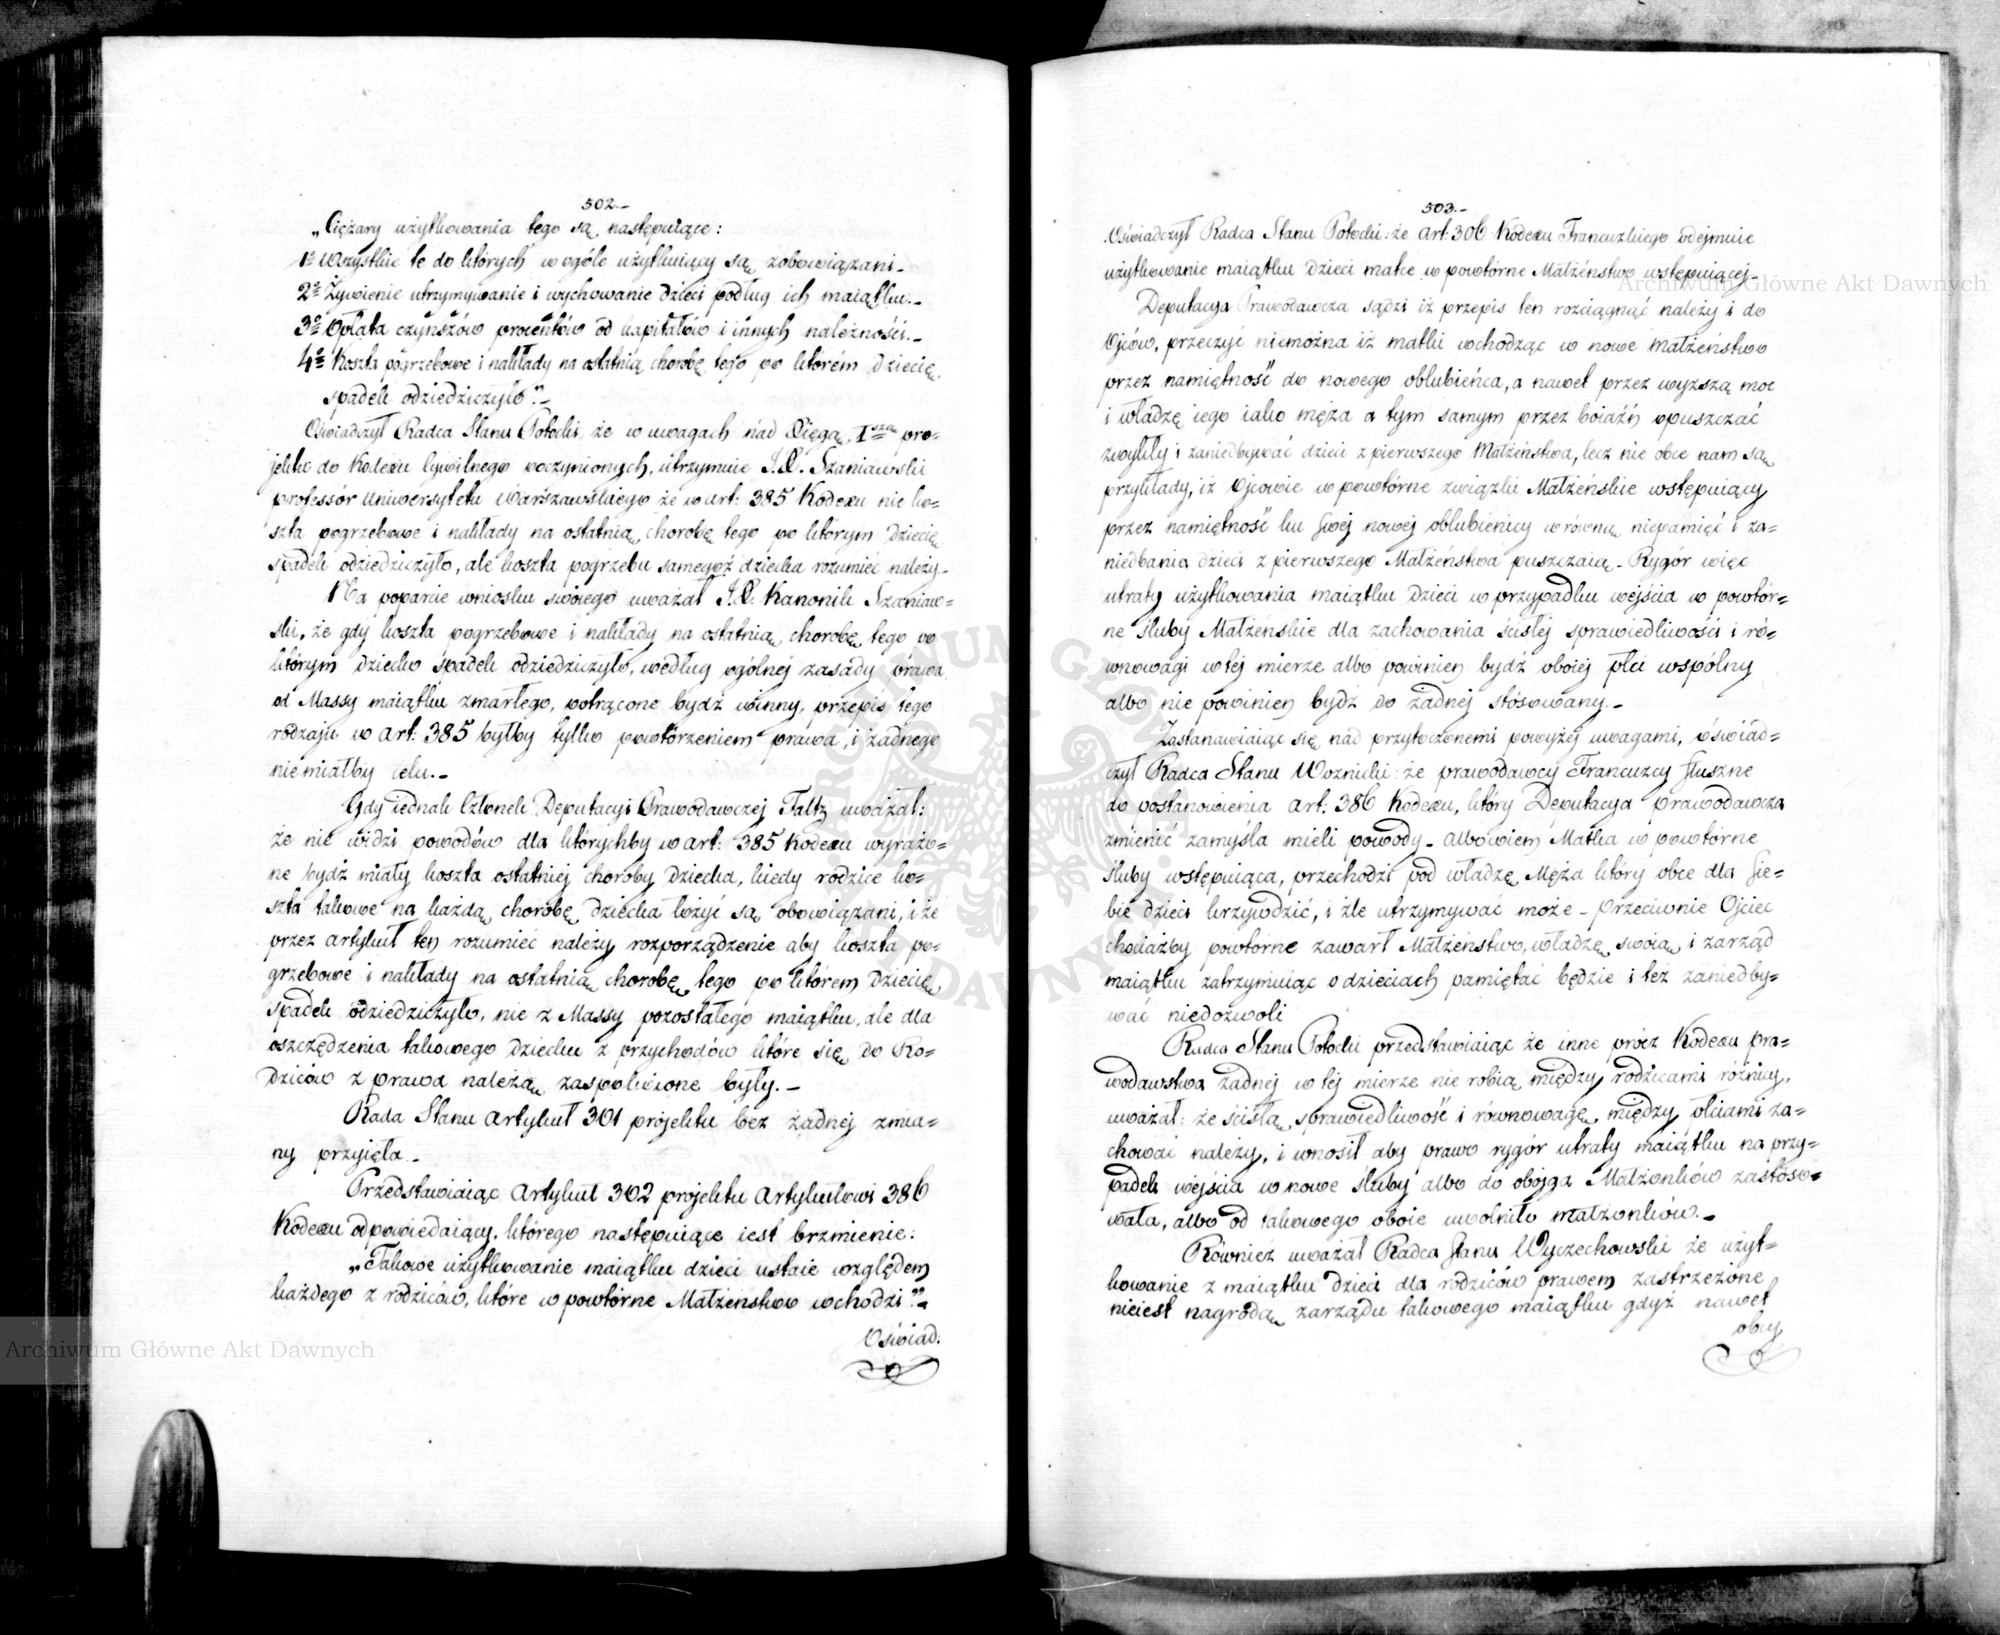 502.-
„Ciężary użytkowania tego są następuiące:
1º Wszystkie te do których w ogóle użytkuiący są zobowiązani.-
2º Żywienie utrzymywanie i wychowanie Dzieci podług ich maiątku.-
3º Opłata czynszów procentów od kapitałów i innych należności.-
4º Koszta pogrzebowe i nakłady na ostatnią chorobę tego po którém Dziecię
spadek odziedziczyło".-
Oświadczył Radca Stanu Potocki, że w uwagach nad Xięgą Iszą pro=
jektu do Kodexu Cywilnego poczynionych, utrzymuie J.X. Szaniawski
professór Uniwersytetu Warszawskiego że w art: 385 Kodexu nie ko=
szta pogrzebowe i nakłady na ostatnią chorobę tego po którym Dziecię
spadek odziedziczyło, ale koszta pogrzebu samegoż dziecka rozumieć należy.-
Na poparcie wniosku swoiego uważał J.X. Kanonik Szaniaw=
ski, że gdy koszta pogrzebowe i nakłady na ostatnią chorobę tego po
którym dziecko spadek odziedziczyło, według ogólnej zasady prawa
od Massy maiątku zmarłego, potrącone bydź winny, przepis tego
rodzaju w art: 385 byłby tylko powtórzeniem prawa, i żadnego
niemiałby celu.-
Gdy iednak Członek Deputacyi Prawodawczej Faltz uważał:
że nie widzi powodów dla którychby w art: 385 Kodexu wyrażo=
ne bydź miały koszta ostatniej choroby Dziecka, kiedy rodzice ko=
szta takowe na każdą chorobę dziecka łożyć są obowiązani, i że
przez artykuł ten rozumieć należy rozporządzenie aby koszta po=
grzebowe i nakłady na ostatnią chorobę tego po którém Dziecię
spadek odziedziczyło, nie z Massy pozostałego maiątku, ale dla
oszczędzenia takowego Dziecku z przychodów które się do Ro=
dziców z prawa należą zaspokoione były.-
Rada Stanu artykuł 301 projektu bez żadnej zmia=
ny przyięła.-
Przedstawiaiąc artykuł 302 projektu artykułowi 386
Kodexu odpowiedaiący, którego następuiące iest brzmienie:
„Takowe użytkowanie maiątku dzieci ustaie względem
każdego z rodziców, które w powtórne Małżeństwo wchodzi".-
Oświad:
503.-
Oświadczył Radca Stanu Potocki: że art: 306 Kodexu Francuzkiego odejmuie
użytkowanie maiątku Dzieci matce w powtórne Małżeństwo wstępuiącej.-
Deputacya Prawodawcza sądzi iż przepis ten rozciągnąć należy i do
Ojców, przeczyć niemożna iż matki wchodząc w nowe małżeństwo
przez namiętność do nowego oblubieńca, a nawet przez wyższą moc
i władzę iego iako męża a tym samym przez boiaźń opuszczać
zwykły i zaniedbywać dzieci z pierwszego Małżeństwa, lecz nie obce nam są
przykłady, iż Ojcowie w powtórne związki Małżeńskie wstępuiący
przez namiętność ku swej nowej oblubienicy w równą niepamięć i za=
niedbania dzieci z pierwszego Małżeństwa puszczaią.- Rygór więc
utraty użytkowania maiątku Dzieci w przypadku wejścia w powtór=
ne śluby Małżeńskie dla zachowania ścisłej sprawiedliwości i ró=
wnowagi w tej mierze albo powinien bydź obojej płci wspólny
albo nie powinien bydź do żadnej stósowany.-
Zastanawiaiąc się nad przytoczonemi powyżej uwagami, oświad=
czył Radca Stanu Woznicki: że prawodawcy Francuzcy słuszne
do postanowienia art: 386 Kodexu, który Deputacya prawodawcza
zmienić zamyśla mieli powody.- Albowiem Matka w powtórne
śluby wstępuiąca, przechodzi pod władzę Męża który obce dla sie=
bie dzieci krzywdzić, i źle utrzymywać może.- Przeciwnie Ojciec
chociażby powtórne zawarł Małżeństwo, władzę swoią i zarząd
maiątku zatrzymuiąc o dzieciach pamiętać będzie i też zaniedby=
wać niedozwoli
Radca Stanu Potocki przedstawiaiąc że inne prócz Kodexu pra=
wodawstwa żadnej w tej mierze nie robią między rodzicami różnicy,
uważał: że ścisłą sprawiedliwość i równowagę między płciami za=
chować należy, i wnosił aby prawo rygór utraty maiątku na przy=
padek wejścia w nowe śluby albo do obojga Małżonków zastóso=
wała, albo od takowego oboie uwolniło małżonków.-
Również uważał Radca Stanu Wyczechowski że użyt=
kowanie z maiątku Dzieci dla rodziców prawem zastrzeżone
nieiest nagrodą zarządu takowego maiątku gdyż nawet
obcy
Archiwum Główne Akt Dawnych
Archiwum Główne Akt Dawnych
ARCHIWUM GŁÓWNE AKT DAWNYCH